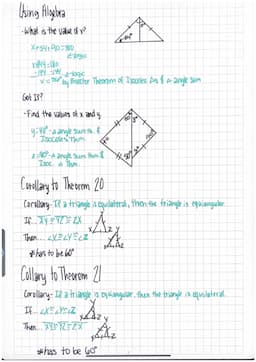 Using Algebra
- What is the value of x?
x+54+90=180
x+144=180
-144 -144
by Bisector Theorem of Isosceles Δs & Δ-angle sum
Got It?
- Find the values of x and y.
Δ-angle sum th. &
Isosceles Thm.
Δ-angle sum thm &
Isos. Δ Thm.
Corollary to Theorem 20
Corollary- If a triangle is equilateral, then the triangle is equiangular.
If... XY≅YZ≅ZX
Then... ∠X≅∠Y≅∠Z
*has to be 60°
Collary to Theorem 21
Corollary- If a triangle is equiangular, then the triangle is equilateral.
If... ∠X≅∠Y≅∠Z
Then... XY≅YZ≅ZX
*has to be 60°